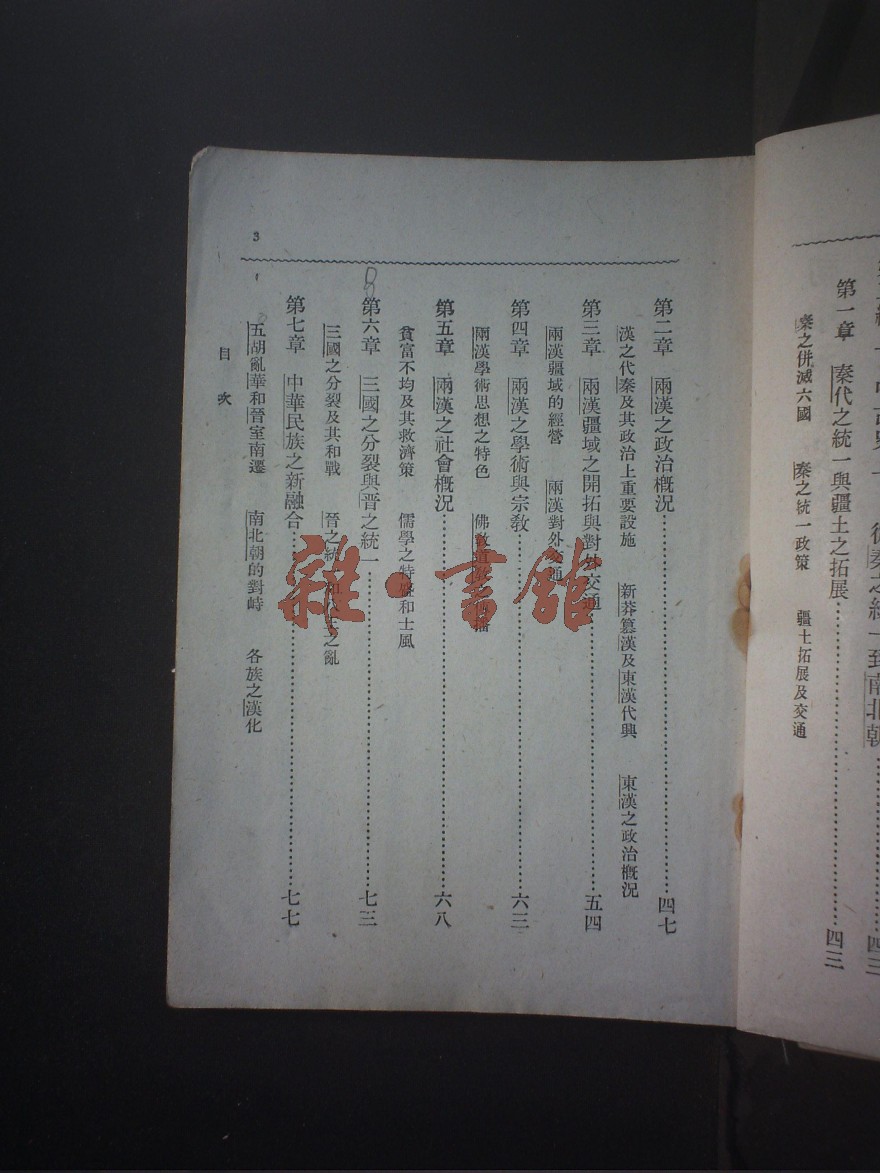 第一章　秦代之統一與疆土之拓展……四三
秦之併滅六國　秦之統一政策　疆土拓展及交通
第二章　兩漢之政治槪況……四七
漢之代秦及其政治上重要設施　新莽簒漢及東漢代興　東漢之政治槪況
第三章　兩漢疆域之開拓與對外交通……五四
兩漢疆域的經營　兩漢對外交通
第四章　兩漢之學術與宗敎……六三
兩漢學術思想之特色　佛敎道敎
第五章　兩漢之社會槪況……六八
貧富不均及其救濟策　儒學之特盛和士風
第六章　三國之分裂與晉之統一……七三
三國之分裂及其和戰　晉之統一　之亂
第七章　中華民族之新融合……七七
五胡亂華和晉室南遷　南北朝的對峙　各族之漢化
目次
3
8
雜·書館